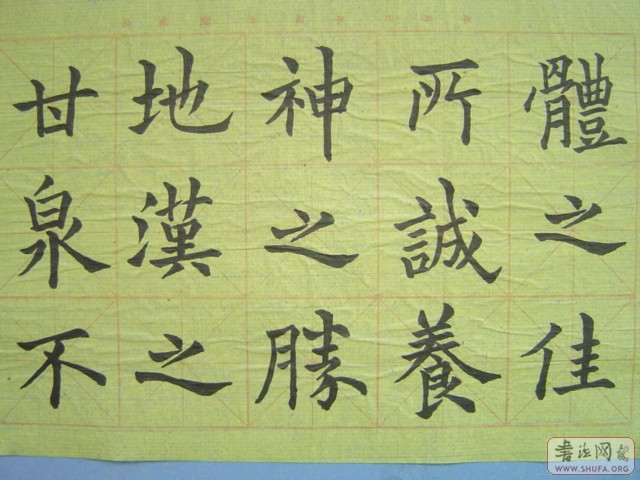 體之佳
所誠養
神之勝
地漢之
甘泉不
書法网
WWW.SHUFA.ORG